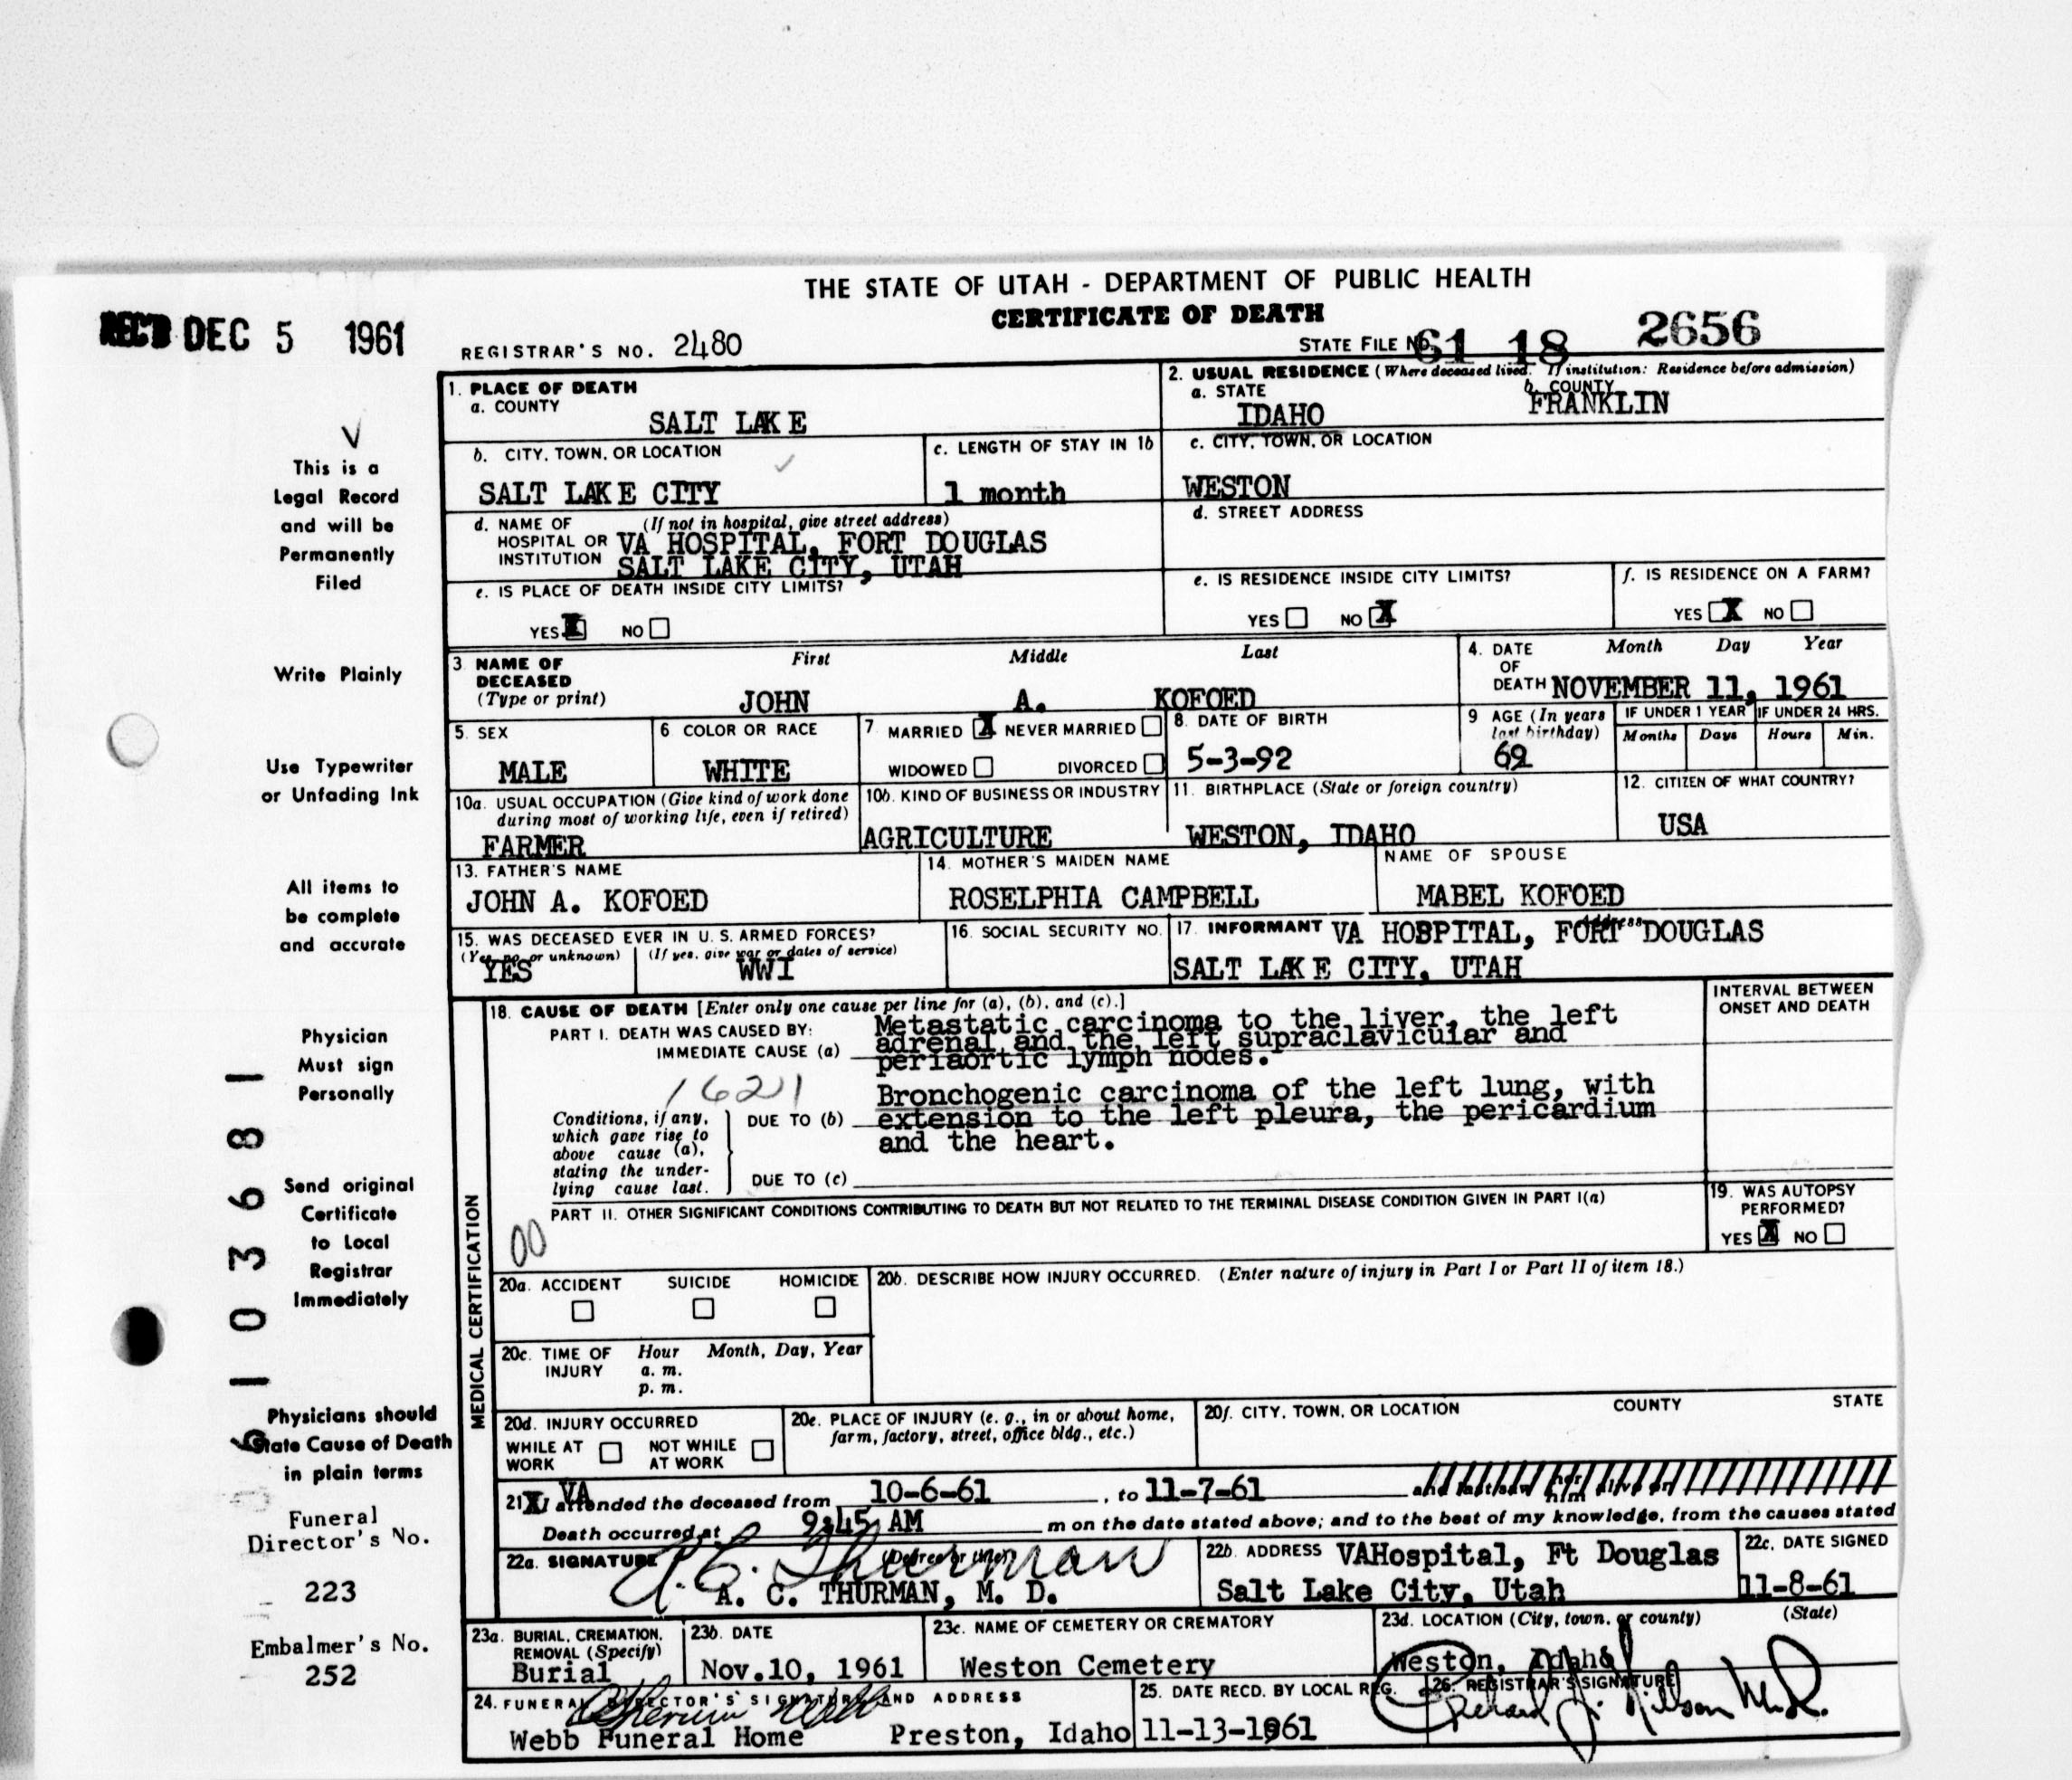 THE STATE OF UTAH - DEPARTMENT OF PUBLIC HEALTH
CERTIFICATE OF DEATH
REC'D DEC 5 1961
REGISTRAR'S NO. 2480
STATE FILE NO. 61 18 2656
1. PLACE OF DEATH
a. COUNTY
SALT LAKE
2. USUAL RESIDENCE (Where deceased lived. If institution: Residence before admission)
a. STATE
IDAHO
b. COUNTY
FRANKLIN
b. CITY, TOWN, OR LOCATION
SALT LAKE CITY
c. LENGTH OF STAY IN 1b
1 month
c. CITY, TOWN, OR LOCATION
WESTON
d. NAME OF (If not in hospital, give street address)
HOSPITAL OR VA HOSPITAL, FORT DOUGLAS
INSTITUTION SALT LAKE CITY, UTAH
d. STREET ADDRESS
e. IS PLACE OF DEATH INSIDE CITY LIMITS?
YES X NO
e. IS RESIDENCE INSIDE CITY LIMITS?
YES NO X
f. IS RESIDENCE ON A FARM?
YES X NO
3 NAME OF DECEASED
(Type or print)
First Middle Last
JOHN A. KOFOED
4. DATE OF DEATH
Month Day Year
NOVEMBER 11, 1961
5. SEX
MALE
6 COLOR OR RACE
WHITE
7 MARRIED X NEVER MARRIED
WIDOWED DIVORCED
8. DATE OF BIRTH
5-3-92
9 AGE (In years last birthday)
69
IF UNDER 1 YEAR
Months Days
IF UNDER 24 HRS.
Hours Min.
10a. USUAL OCCUPATION (Give kind of work done
during most of working life, even if retired)
FARMER
10b. KIND OF BUSINESS OR INDUSTRY
AGRICULTURE
11. BIRTHPLACE (State or foreign country)
WESTON, IDAHO
12. CITIZEN OF WHAT COUNTRY?
USA
13. FATHER'S NAME
JOHN A. KOFOED
14. MOTHER'S MAIDEN NAME
ROSELPHIA CAMPBELL
NAME OF SPOUSE
MABEL KOFOED
15. WAS DECEASED EVER IN U. S. ARMED FORCES?
(Yes, no, or unknown) (If yes, give war or dates of service)
YES WWI
16. SOCIAL SECURITY NO.
17. INFORMANT Address
VA HOSPITAL, FORT DOUGLAS
SALT LAKE CITY, UTAH
MEDICAL CERTIFICATION
18. CAUSE OF DEATH [Enter only one cause per line for (a), (b), and (c).]
INTERVAL BETWEEN
ONSET AND DEATH
PART I. DEATH WAS CAUSED BY:
IMMEDIATE CAUSE (a)
Metastatic carcinoma to the liver, the left
adrenal and the left supraclavicular and
periaortic lymph nodes.
1621
Conditions, if any,
which gave rise to
above cause (a),
stating the under-
lying cause last.
DUE TO (b)
Bronchogenic carcinoma of the left lung, with
extension to the left pleura, the pericardium
and the heart.
DUE TO (c)
PART II. OTHER SIGNIFICANT CONDITIONS CONTRIBUTING TO DEATH BUT NOT RELATED TO THE TERMINAL DISEASE CONDITION GIVEN IN PART I(a)
00
19. WAS AUTOPSY
PERFORMED?
YES X NO
20a. ACCIDENT SUICIDE HOMICIDE
20b. DESCRIBE HOW INJURY OCCURRED. (Enter nature of injury in Part I or Part II of item 18.)
20c. TIME OF INJURY
Hour Month, Day, Year
a. m.
p. m.
20d. INJURY OCCURRED
WHILE AT WORK NOT WHILE AT WORK
20e. PLACE OF INJURY (e. g., in or about home,
farm, factory, street, office bldg., etc.)
20f. CITY, TOWN, OR LOCATION COUNTY STATE
21. VA attended the deceased from 10-6-61, to 11-7-61
Death occurred at 9:45 AM m on the date stated above; and to the best of my knowledge, from the causes stated
22a. SIGNATURE (Degree or title)
A. C. Thurman
A. C. THURMAN, M. D.
22b. ADDRESS VAHospital, Ft Douglas
Salt Lake City, Utah
22c. DATE SIGNED
11-8-61
23a. BURIAL, CREMATION,
REMOVAL (Specify)
Burial
23b. DATE
Nov.10, 1961
23c. NAME OF CEMETERY OR CREMATORY
Weston Cemetery
23d. LOCATION (City, town, or county) (State)
Weston, Idaho
24. FUNERAL DIRECTOR'S SIGNATURE AND ADDRESS
Webb Funeral Home Preston, Idaho
25. DATE RECD. BY LOCAL REG.
11-13-1961
26. REGISTRAR'S SIGNATURE
This is a
Legal Record
and will be
Permanently
Filed
Write Plainly
Use Typewriter
or Unfading Ink
All items to
be complete
and accurate
Physician
Must sign
Personally
Send original
Certificate
to Local
Registrar
Immediately
Physicians should
State Cause of Death
in plain terms
Funeral
Director's No.
223
Embalmer's No.
252